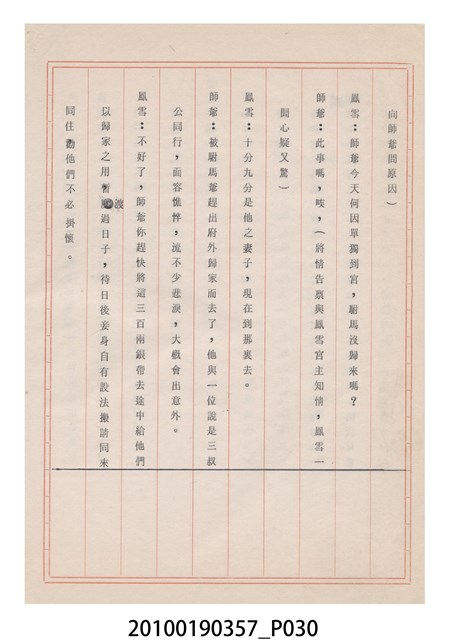 向師爺問原因）
鳳雪：師爺今天何因單獨到宮，駙馬沒歸來嗎？
師爺：此事嗎，唉，（將情告禀與鳳雪宮主知情，鳳雪一
聞心疑又驚）
鳳雪：十分九分是他之妻子，現在到那裏去。
師爺：被駙馬爺趕出府外歸家而去了，他與一位說是三叔
公同行，面容憔悴，流不少悲淚，大概會出意外。
鳳雪：不好了，師爺你趕快將這三百兩銀帶去途中給他們
以歸家之用暫渡過日子，待日後妾身自有設法搬請同來
同住勸他們不必掛懷。
20100190357_P030